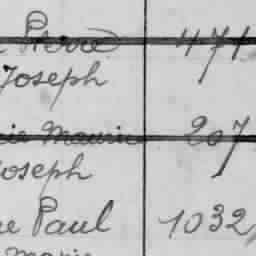 Pierre 471
Joseph
Maurice 207
Joseph
Paul 1032
Marie